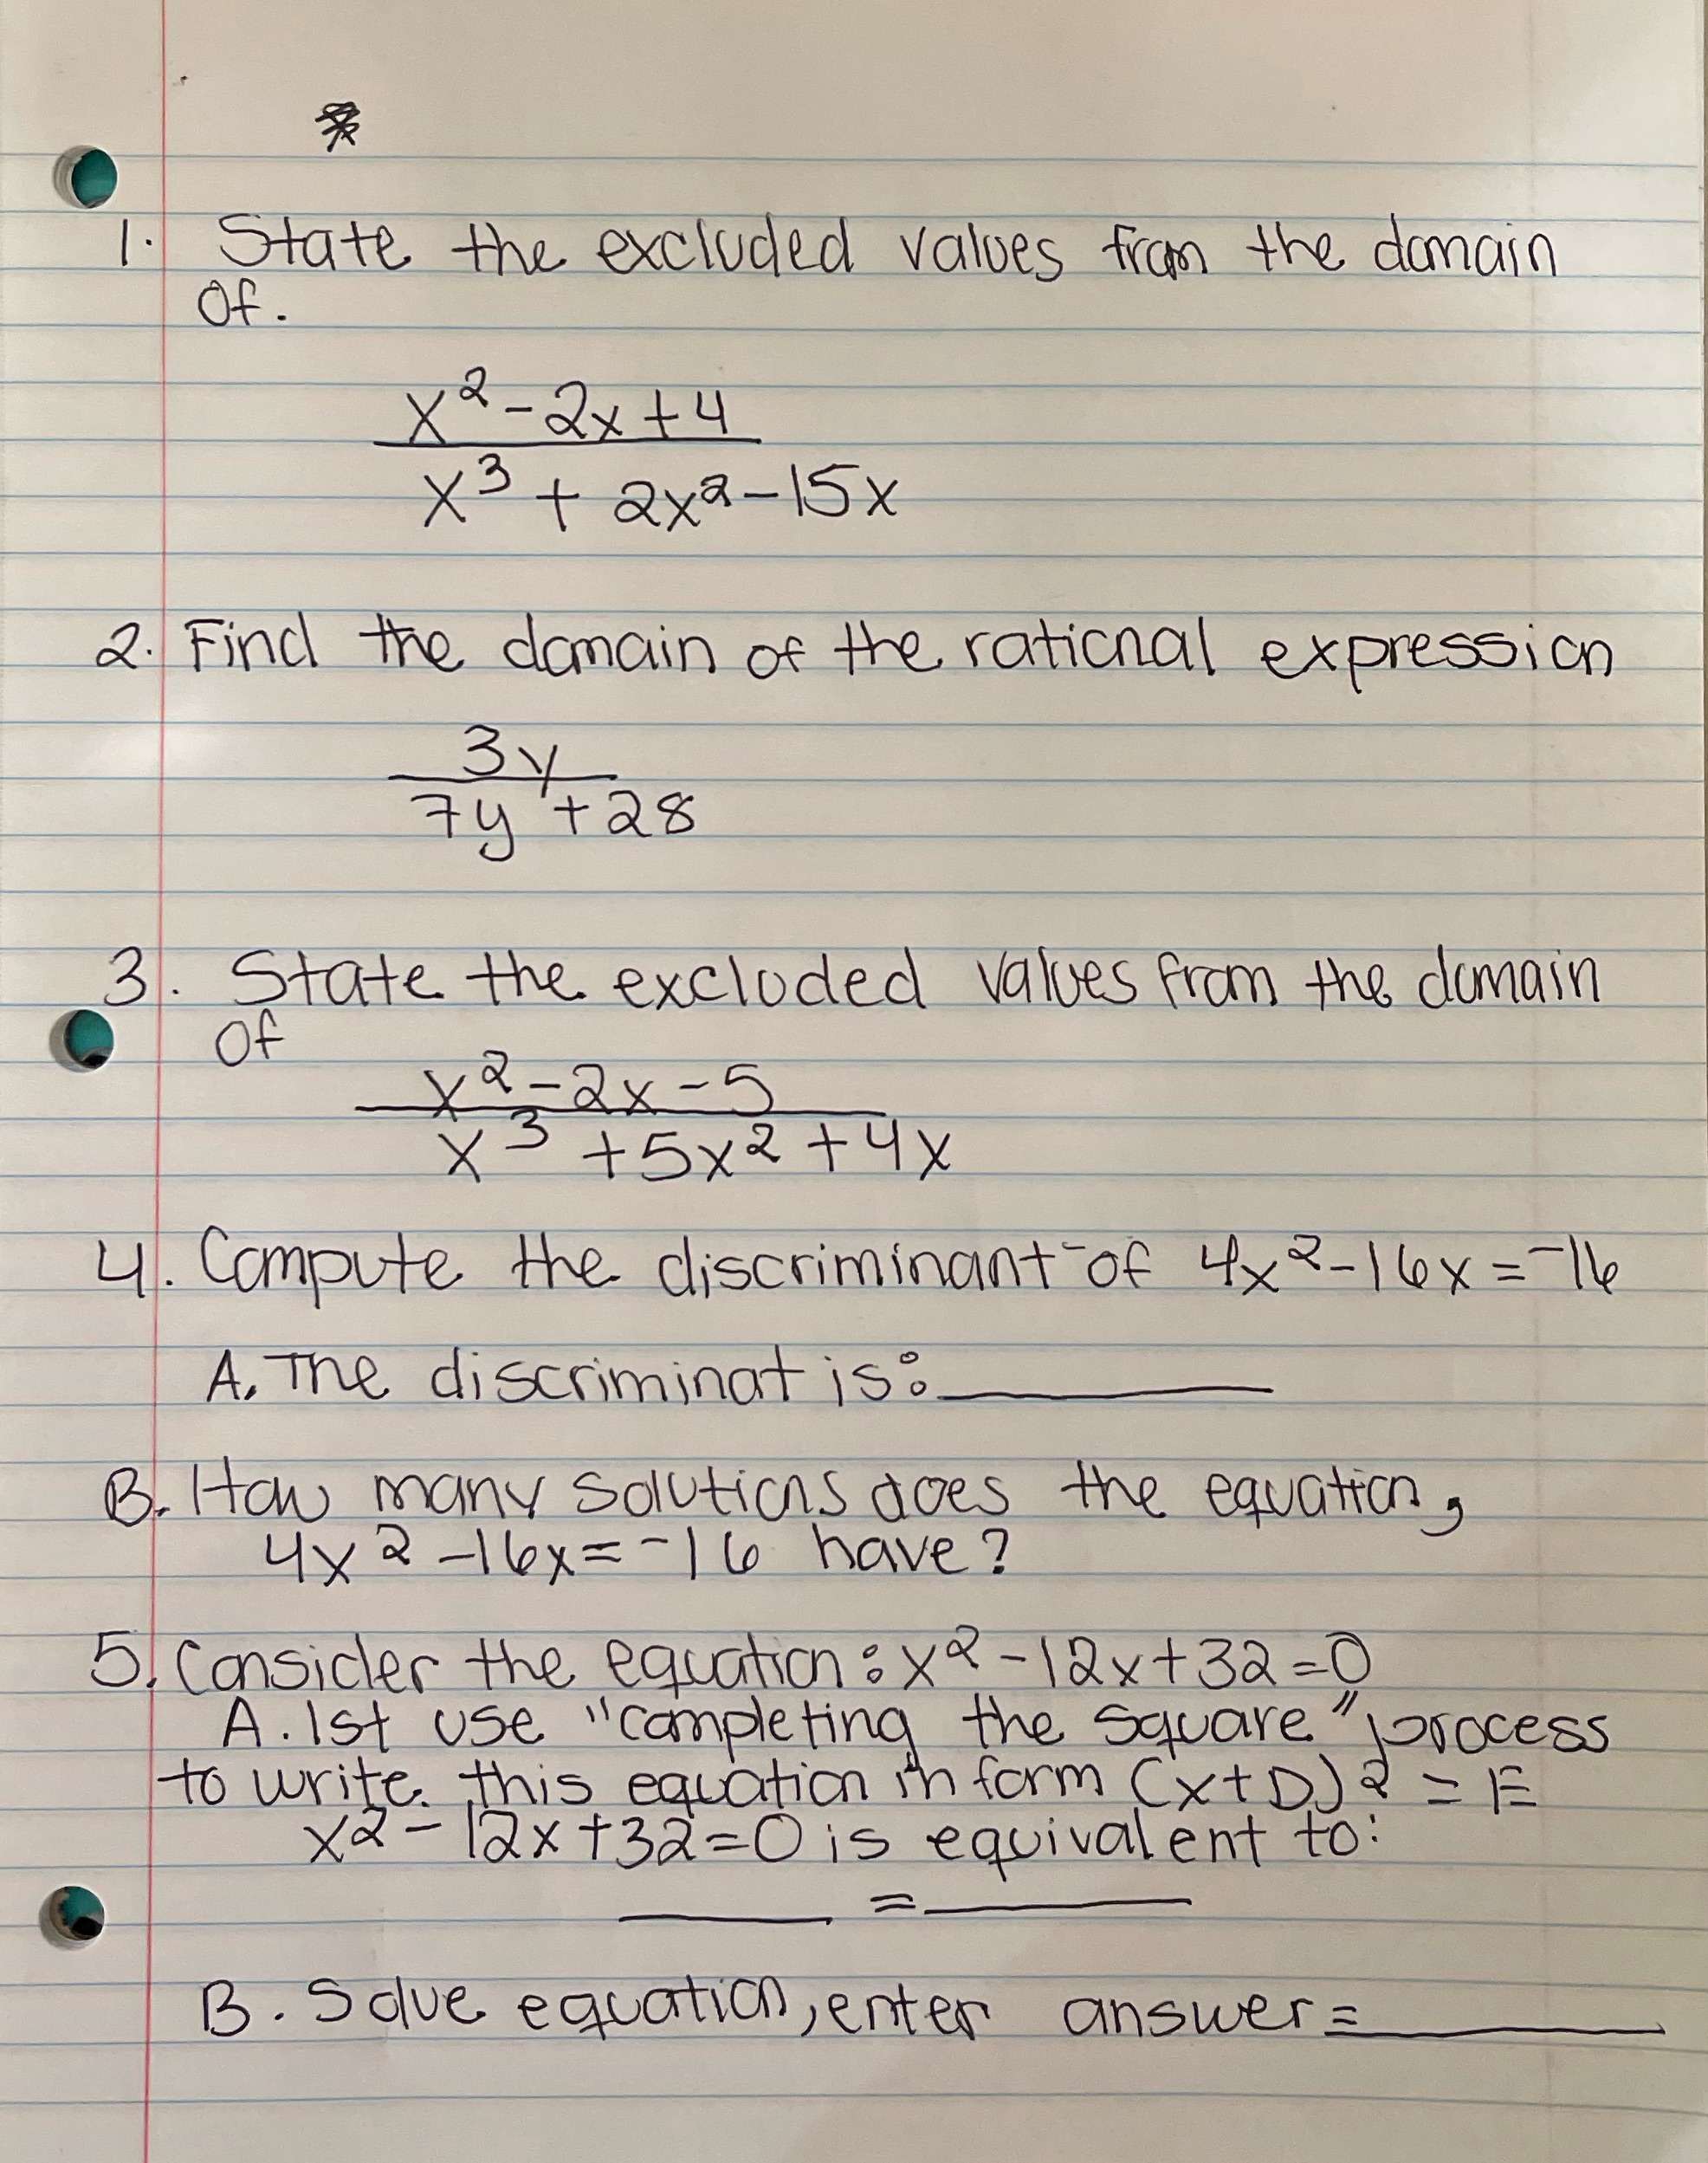 1. State the excluded values from the domain
of.
x² - 2x + 4
x³ + 2x² - 15x
2. Find the domain of the rational expression
3y
7y + 28
3. State the excluded values from the domain
of
x² - 2x - 5
x³ + 5x² + 4x
4. Compute the discriminant of 4x² - 16x = -16
A. The discriminat is: ________
B. How many solutions does the equation,
4x² - 16x = -16 have?
5. Consider the equation: x² - 12x + 32 = 0
A. 1st use "completing the square" process
to write this equation in form (x + D)² = E
x² - 12x + 32 = 0 is equivalent to:
______ = ________
B. Solve equation, enter answer = ________